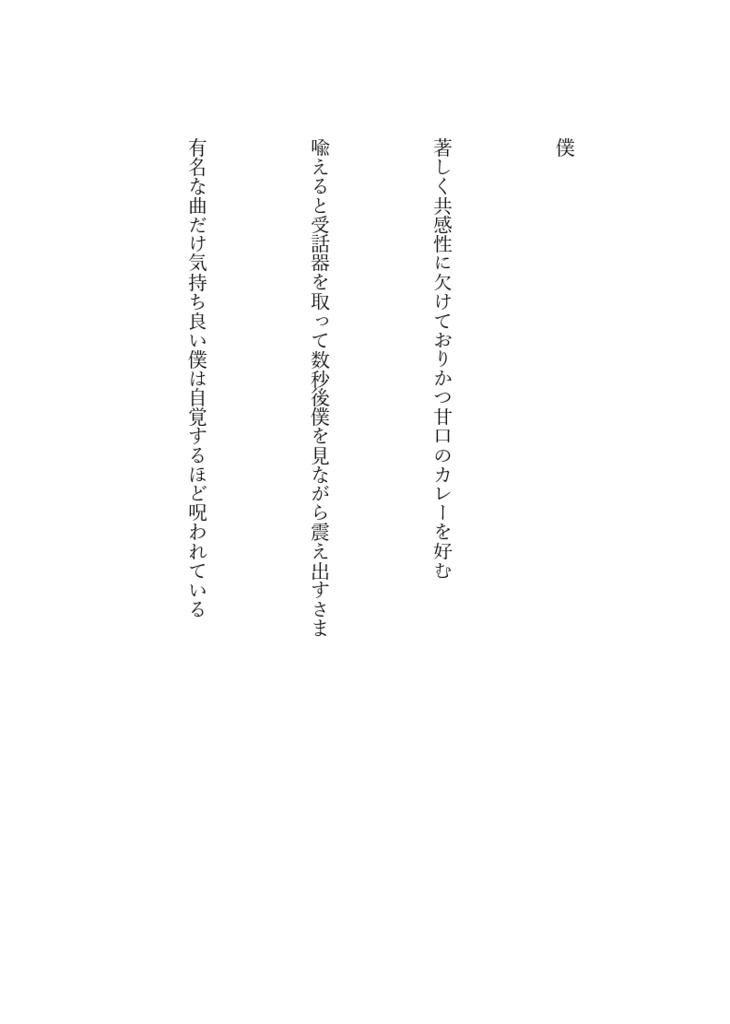 僕
著しく共感性に欠けておりかつ甘口のカレーを好む
喩えると受話器を取って数秒後僕を見ながら震え出すさま
有名な曲だけ気持ち良い僕は自覚するほど呪われている